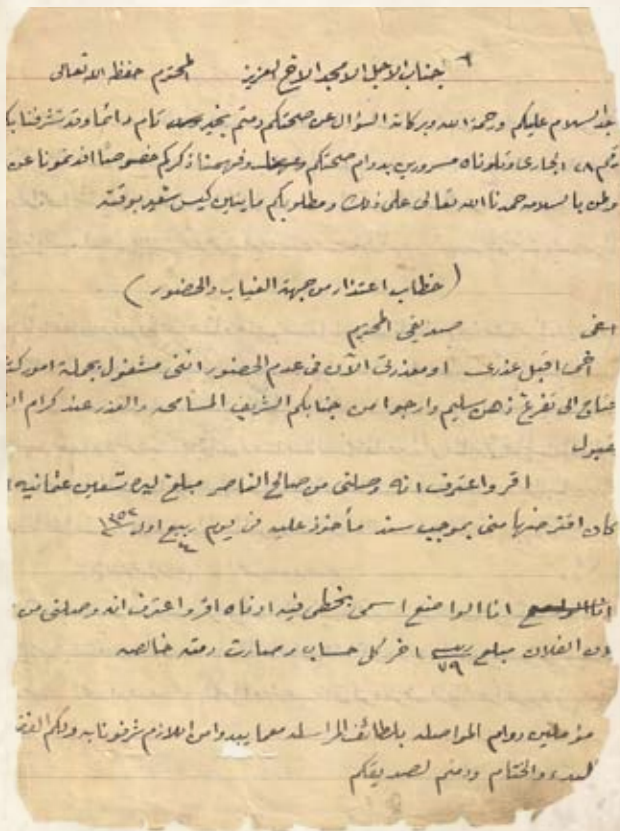 جناب الاجل الامجد الاخ العزيز المحترم حفظه الله تعالى
بعد السلام عليكم ورحمة الله وبركاته السؤال عن صحتكم دمتم بخير تام دائما وقد تشرفنا
٢٨ الجاري وتلوناه مسرورين بدوام صحتكم وفهمنا ذكركم خصوصا عن
وطن بالسلامه حمدنا الله تعالى على ذلك ومطلوبكم مايتين كيس شعير بوقته
(خطاب اعتذار من جهة الغياب والحضور)
اخي صديقي المحترم
اخي اقبل عذري او معذرتي الآن في عدم الحضور انني مشغول بجملة امور
تحتاج الى تفرغ ذهن سليم وارجوا من جنابكم الشريف المسامحه والعذر عند كرام
مقبول
اقر واعترف انه وصلني من صالح الناصر مبلغ ليره تسعين عثمانيه
كان اقترضها مني بموجب سند مأخوذ عليه في يوم ٤ ربيع اول ١٣٥٢
انا الواضع اسمي بخطي فيه ادناه اقر واعترف انه وصلني من
الفلان مبلغ ٧٩ اخر كل حساب وصارت ذمته خالصه
مؤملين دوام المواصله بلطائف المراسله مهما يبدو من اللازم شرفونا به ولكم
البدء والختام ودمتم لصديقكم